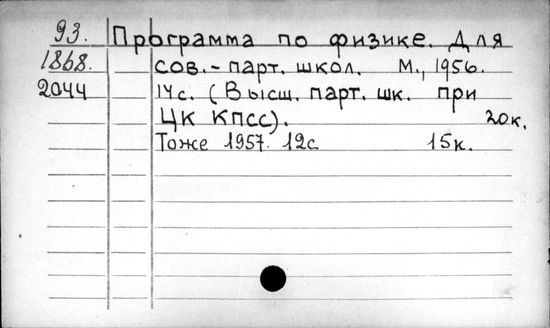 93. Программа по физике. Для
1868. сов.-парт. школ. М., 1956.
2044 14с. (Высш. парт. шк. при
ЦК КПСС). 20к.
Тоже 1957. 12с 15к.